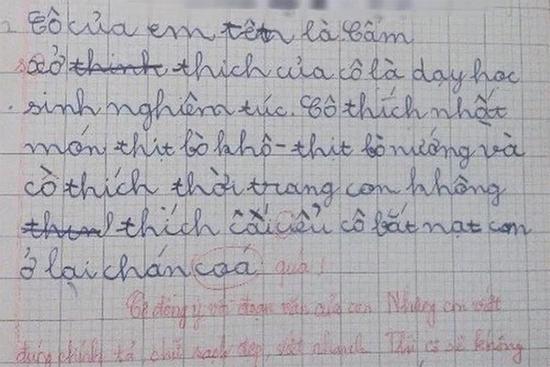 Cô của em tên là Cẩm
sở thinh thích của cô là dạy học
sinh nghiêm túc. Cô thích nhất
món thịt bò khô - thịt bò nướng và
cô thích thời trang con không
thích cái kiểu cô bắt nạt con
ở lại chán coá quá!
Cô đồng ý với đoạn văn của con Nhưng con viết
đúng chính tả, chữ sạch đẹp, viết nhanh Thì cô sẽ không